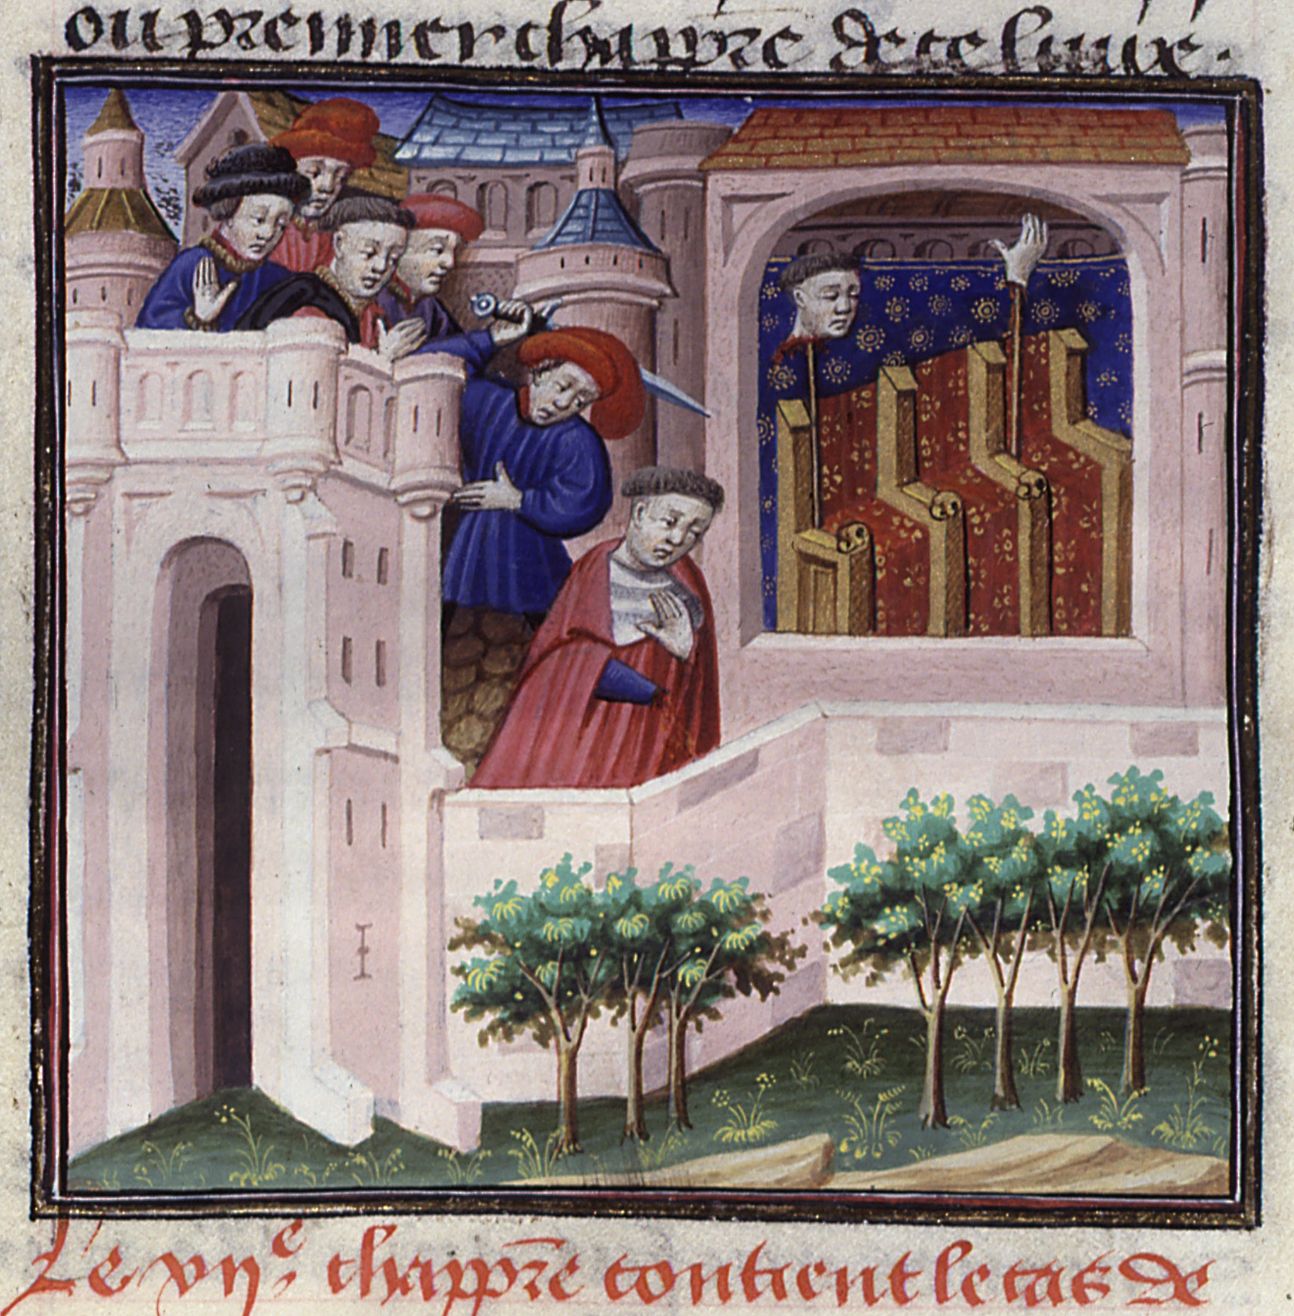 ou premier chappr̃e de ce liure.
Le vije chappr̃e contient le cas de